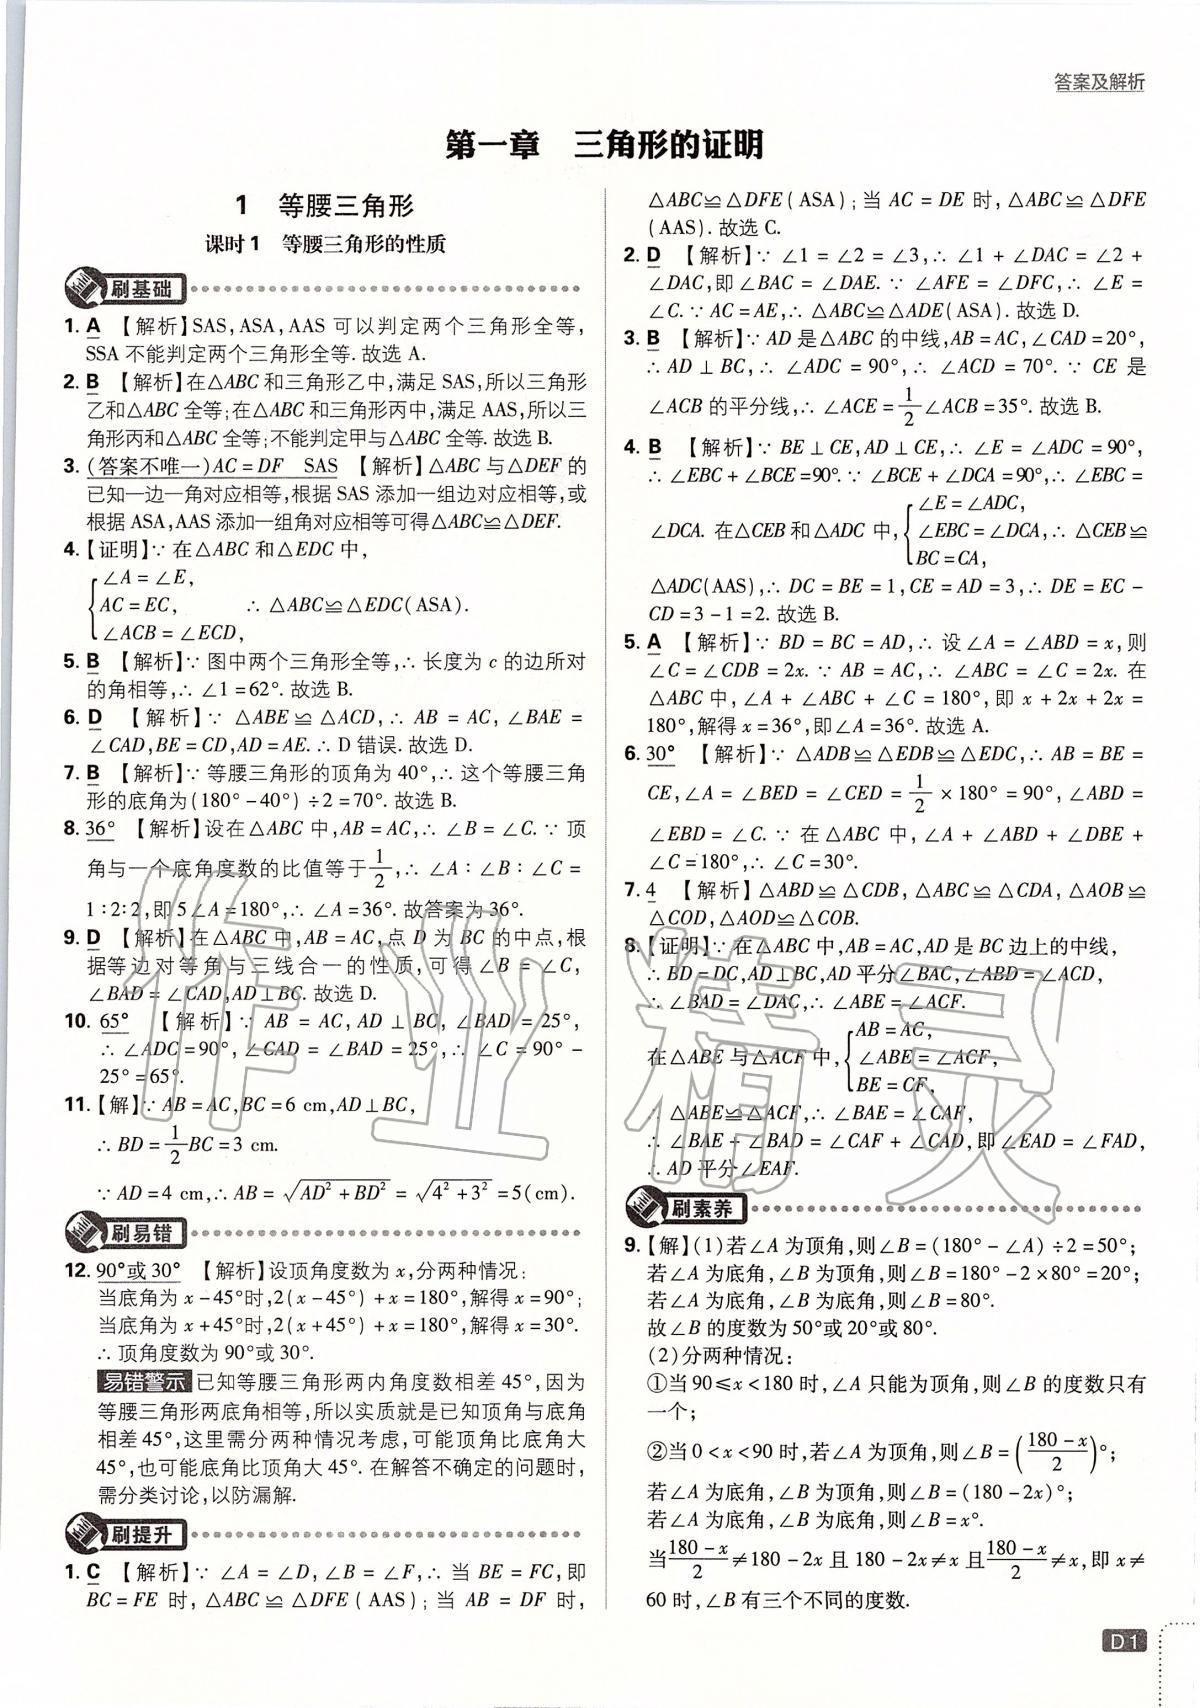 答案及解析
第一章 三角形的证明
1 等腰三角形
课时1 等腰三角形的性质
刷基础
1. A 【解析】SAS,ASA,AAS 可以判定两个三角形全等,
SSA 不能判定两个三角形全等. 故选 A.
2. B 【解析】在△ABC 和三角形乙中,满足 SAS,所以三角形
乙和△ABC 全等;在△ABC 和三角形丙中,满足 AAS,所以三
角形丙和△ABC 全等;不能判定甲与△ABC 全等. 故选 B.
3. (答案不唯一)AC=DF SAS 【解析】△ABC 与△DEF 的
已知一边一角对应相等,根据 SAS 添加一组边对应相等,或
根据 ASA,AAS 添加一组角对应相等可得△ABC≌△DEF.
4.【证明】∵ 在△ABC 和△EDC 中,
{∠A=∠E,
AC=EC, ∴ △ABC≌△EDC(ASA).
∠ACB=∠ECD,
5. B 【解析】∵ 图中两个三角形全等,∴ 长度为 c 的边所对
的角相等,∴ ∠1=62°. 故选 B.
6. D 【解析】∵ △ABE≌△ACD,∴ AB=AC,∠BAE=
∠CAD,BE=CD,AD=AE. ∴ D 错误. 故选 D.
7. B 【解析】∵ 等腰三角形的顶角为 40°,∴ 这个等腰三角
形的底角为(180°-40°)÷2=70°. 故选 B.
8. 36° 【解析】设在△ABC 中,AB=AC,∴ ∠B=∠C. ∵ 顶
角与一个底角度数的比值等于1/2,∴ ∠A:∠B:∠C=
1:2:2,即 5∠A=180°,∴ ∠A=36°. 故答案为 36°.
9. D 【解析】在△ABC 中,AB=AC,点 D 为 BC 的中点,根
据等边对等角与三线合一的性质,可得∠B=∠C,
∠BAD=∠CAD,AD⊥BC. 故选 D.
10. 65° 【解析】∵ AB=AC,AD⊥BC,∠BAD=25°,
∴ ∠ADC=90°,∠CAD=∠BAD=25°,∴ ∠C=90°-
25°=65°.
11.【解】∵ AB=AC,BC=6 cm,AD⊥BC,
∴ BD=1/2BC=3 cm.
∵ AD=4 cm,∴ AB=√(AD²+BD²)=√(4²+3²)=5(cm).
刷易错
12. 90°或 30° 【解析】设顶角度数为 x,分两种情况:
当底角为 x-45°时,2(x-45°)+x=180°,解得 x=90°;
当底角为 x+45°时,2(x+45°)+x=180°,解得 x=30°.
∴ 顶角度数为 90°或 30°.
易错警示 已知等腰三角形两内角度数相差 45°,因为
等腰三角形两底角相等,所以实质就是已知顶角与底角
相差 45°,这里需分两种情况考虑,可能顶角比底角大
45°,也可能底角比顶角大 45°. 在解答不确定的问题时,
需分类讨论,以防漏解.
刷提升
1. C 【解析】∵ ∠A=∠D,∠B=∠F,∴ 当 BE=FC,即
BC=FE 时,△ABC≌△DFE(AAS);当 AB=DF 时,
△ABC≌△DFE(ASA);当 AC=DE 时,△ABC≌△DFE
(AAS). 故选 C.
2. D 【解析】∵ ∠1=∠2=∠3,∴ ∠1+∠DAC=∠2+
∠DAC,即∠BAC=∠DAE. ∵ ∠AFE=∠DFC,∴ ∠E=
∠C. ∵ AC=AE,∴ △ABC≌△ADE(ASA). 故选 D.
3. B 【解析】∵ AD 是△ABC 的中线,AB=AC,∠CAD=20°,
∴ AD⊥BC,∴ ∠ADC=90°,∴ ∠ACD=70°. ∵ CE 是
∠ACB 的平分线,∴ ∠ACE=1/2∠ACB=35°. 故选 B.
4. B 【解析】∵ BE⊥CE,AD⊥CE,∴ ∠E=∠ADC=90°,
∴ ∠EBC+∠BCE=90°. ∵ ∠BCE+∠DCA=90°,∴ ∠EBC=
{∠E=∠ADC,
∠DCA. 在△CEB 和△ADC 中, ∠EBC=∠DCA,∴ △CEB≌
BC=CA,
△ADC(AAS),∴ DC=BE=1,CE=AD=3,∴ DE=EC-
CD=3-1=2. 故选 B.
5. A 【解析】∵ BD=BC=AD,∴ 设∠A=∠ABD=x,则
∠C=∠CDB=2x. ∵ AB=AC,∴ ∠ABC=∠C=2x. 在
△ABC 中,∠A+∠ABC+∠C=180°,即 x+2x+2x=
180°,解得 x=36°,即∠A=36°. 故选 A.
6. 30° 【解析】∵ △ADB≌△EDB≌△EDC,∴ AB=BE=
CE,∠A=∠BED=∠CED=1/2×180°=90°,∠ABD=
∠EBD=∠C. ∵ 在△ABC 中,∠A+∠ABD+∠DBE+
∠C=180°,∴ ∠C=30°.
7. 4 【解析】△ABD≌△CDB,△ABC≌△CDA,△AOB≌
△COD,△AOD≌△COB.
8.【证明】∵ 在△ABC 中,AB=AC,AD 是 BC 边上的中线,
∴ BD=DC,AD⊥BC,AD 平分∠BAC,∠ABD=∠ACD,
∴ ∠BAD=∠DAC,∴ ∠ABE=∠ACF.
{AB=AC,
在△ABE 与△ACF 中, ∠ABE=∠ACF,
BE=CF,
∴ △ABE≌△ACF,∴ ∠BAE=∠CAF,
∴ ∠BAE+∠BAD=∠CAF+∠CAD,即∠EAD=∠FAD,
∴ AD 平分∠EAF.
刷素养
9.【解】(1)若∠A 为顶角,则∠B=(180°-∠A)÷2=50°;
若∠A 为底角,∠B 为顶角,则∠B=180°-2×80°=20°;
若∠A 为底角,∠B 为底角,则∠B=80°.
故∠B 的度数为 50°或 20°或 80°.
(2)分两种情况:
①当 90≤x<180 时,∠A 只能为顶角,则∠B 的度数只有
一个;
②当 0<x<90 时,若∠A 为顶角,则∠B=((180-x)/2)°;
若∠A 为底角,∠B 为顶角,则∠B=(180-2x)°;
若∠A 为底角,∠B 为底角,则∠B=x°.
当(180-x)/2≠180-2x 且 180-2x≠x 且(180-x)/2≠x,即 x≠
60 时,∠B 有三个不同的度数.
D1
作业精灵